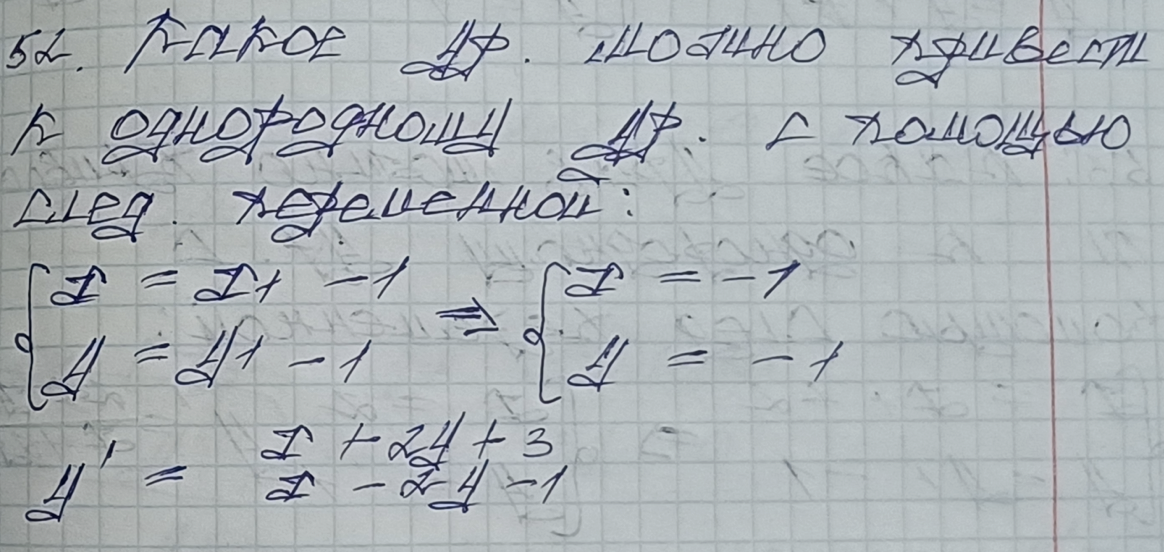 52. Какое ур. можно привести
к однородному ур. с помощью
след. переменной:
{ x = x1 - 1 => { x = -1
{ y = y1 - 1 { y = -1
y' = x + 2y + 3
x - 2y - 1